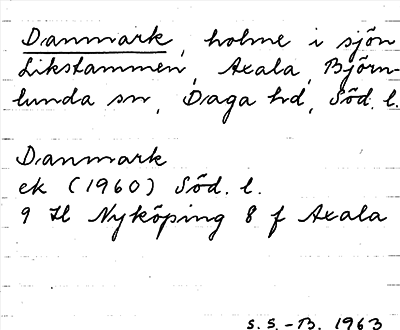 Danmark, holme i sjön
Likstammen, Axala, Björn-
lunda sn, Daga hd, Söd. l.
Danmark
ek (1960) Söd. l.
9 H Nyköping 8 f Axala
S. S.-B. 1963